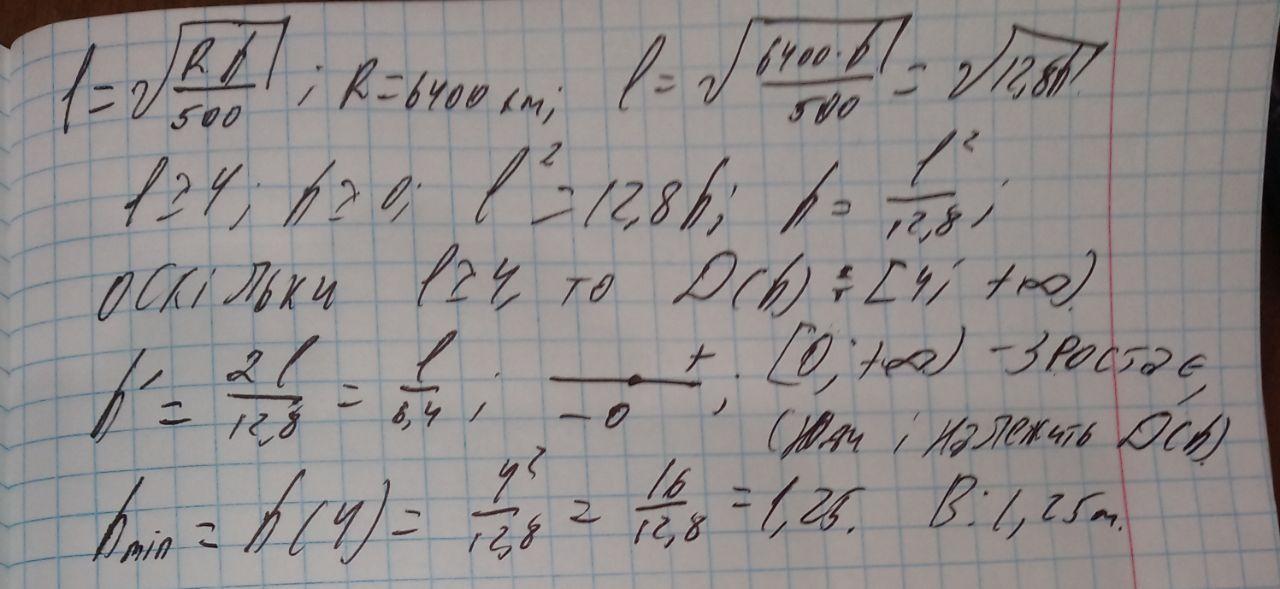 l = √(Rh/500); R = 6400 км; l = √(6400·h/500) = √12,8h
l ≥ 4; h ≥ 0; l² = 12,8h; h = l²/12,8;
оскільки l ≥ 4, то D(h) = [4; +∞)
h' = 2l/12,8 = l/6,4; − 0 +; [0; +∞) – зростає,
(сюди і належить D(h))
h min = h(4) = 4²/12,8 = 16/12,8 = 1,25. В: 1,25 м.